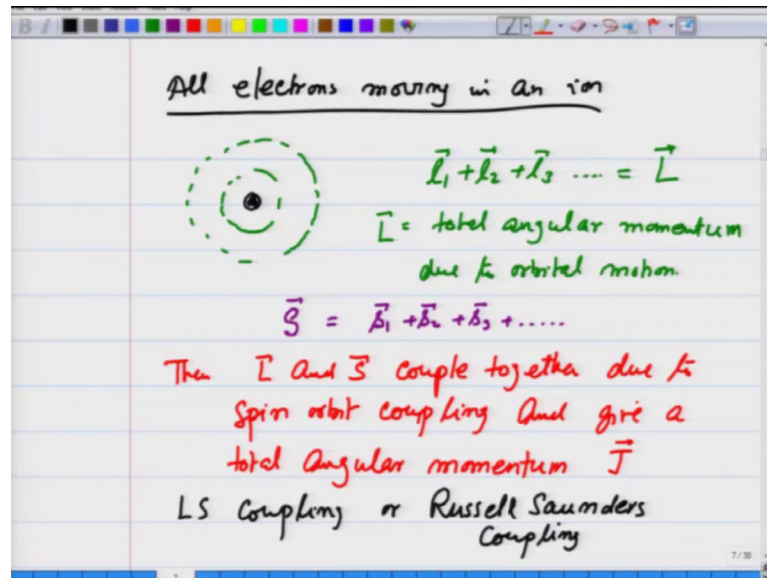 All electrons moving in an ion
l⃗₁ + l⃗₂ + l⃗₃ .... = L⃗
L⃗ = total angular momentum
due to orbital motion.
S⃗ = s⃗₁ + s⃗₂ + s⃗₃ + .....
Then L⃗ and S⃗ couple together due to
spin orbit coupling and give a
total angular momentum J⃗
LS Coupling or Russell Saunders
Coupling
7/30